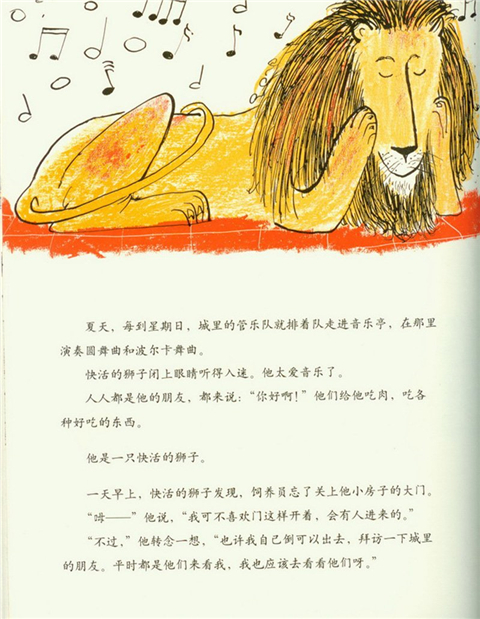 夏天，每到星期日，城里的管乐队就排着队走进音乐亭，在那里
演奏圆舞曲和波尔卡舞曲。
快活的狮子闭上眼睛听得入迷。他太爱音乐了。
人人都是他的朋友，都来说：“你好啊！”他们给他吃肉，吃各
种好吃的东西。
他是一只快活的狮子。
一天早上，快活的狮子发现，饲养员忘了关上他小房子的大门。
“呣——”他说，“我可不喜欢门这样开着，会有人进来的。”
“不过，”他转念一想，“也许我自己倒可以出去，拜访一下城里
的朋友。平时都是他们来看我，我也应该去看看他们呀。”